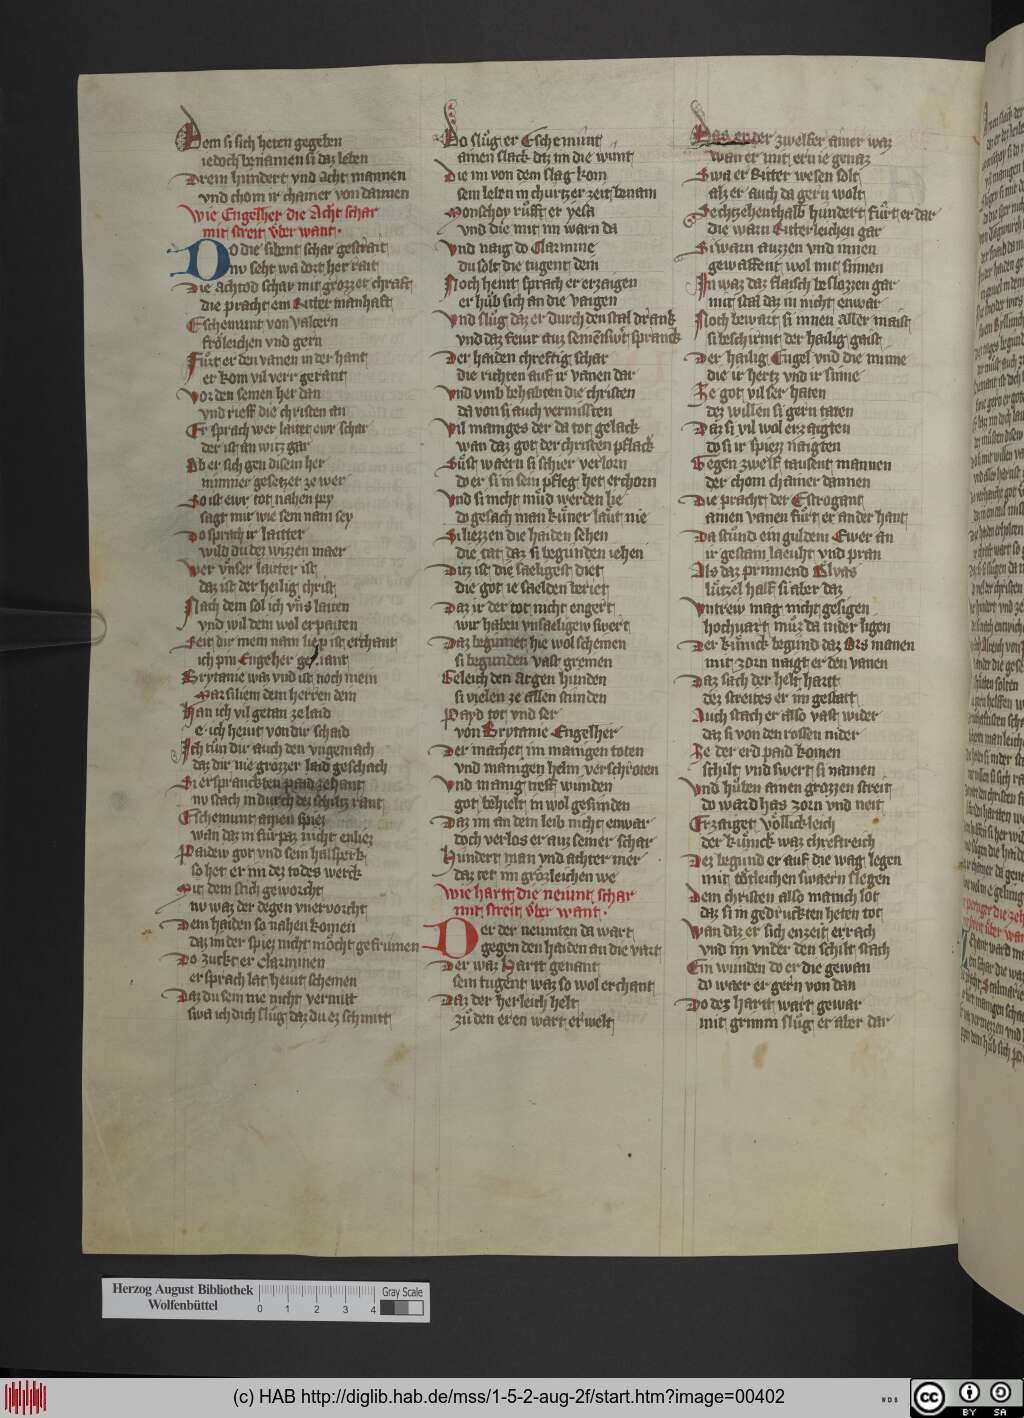 Dem si sich heten gegeben
iedoch benamen si daz leben
Drein hundert vnd Acht mannen
vnd chom ir chainer von dannen
Wie Engelher die Acht schar
mit streit v̊ber want.
DO die sibent schar gestrait
nv seht wa dort her rait
Die Achtod schar mit grozzer chraft
die pracht ein Ritter manhaft
Eschemunt von valtern
frőleichen vnd gern
Fůrt er den vanen in der hant
er kom vil verr gerant
Vor den seinen her dan
vnd rieff die christen an
Er sprach wer laitet ewr schar
der ist an witz gar
Ab er sich gen disem her
nimmer gesetzet ze wer
So ist ewr tot nahen pey
sagt mir wie sein nam sey
Do sprach ir laitter
wild du dez wizzen maer
Wer vnser laiter ist
daz ist der heilig christ
Nach dem sol ich vns laiten
vnd wil dein wol erpaiten
Seit dir mein nam liep ist erchant
ich pin Engelher genant
Brytanie waz vnd ist noch mein
Marsiliem dem herren dein
Han ich vil getan ze laid
e ich hewt von dir schaid
Ich tůn dir auch den vngemach
daz dir nie grozzer laid geschach
Si erspranckten paid zehant
nv stach in durch dez schiltz rant
Eschemunt ainen spiez
wan daz in fůrpaz nicht enliez
Paidew got vnd sein halsperk
so het er im dez todes werck
Mit dem stich geworcht
nv waz der degen vnervorcht
Dem haiden so nahen komen
daz im der spiez nicht mocht gefrumen
Do zuckt er Clarminen
er sprach lat hewt scheinen
Daz du sein nie nicht vermitt
swa ich dich slůg daz du ez schnitt
Do slůg er Eschemunt
ainen slack daz im die wunt
Die im von dem slag kom
sein leben in churtzer zeit benam
Monschoy růfft er yesa
vnd die mit im warn da
Vnd naig do Clarmine
du solt die tugent dein
Noch hewt sprach er erzaigen
er hůb sich an die vaigen
Vnd slůg daz er durch den stal drank
vnd daz fewr auz seinē swert spranck
Der haiden chreftig schar
die richten auf ir vanen dar
Vnd vmb behabten die christen
da von si auch vermissten
Vil maniges der da tot gelack
wan daz got der christen pflack
Sůst waern si schier verlorn
do er si in sein pfleg het erchorn
Vnd si nicht můd werden lie
do gesach man kůner laůt nie
Si liezzen die haiden sehen
die tat daz si begunden iehen
Ditz ist die saeligest diet
die got ie saelden beriet
Daz ir der tot nicht engert
wir haben vnsaeligew swert
Daz begunet hie wol scheinen
si begunden vast greinen
Geleich den argen hunden
si vielen ze allen stunden
Payd tot vnd ser
von Brytanie Engelher
Der machet im manigen toten
vnd manigen helm verschroten
Vnd manig tieff wunden
got behielt in wol gesunden
Daz im an dem leib nicht enwar
doch verlos er auz seiner schar
Hundert man vnd achter mer
daz tet im grozleichen we
Wie hartt die neunt schar
mit streit v̊ber want.
Der der neunten da wart
gegen den haiden an die vart
Der waz Hartt genant
sein tugent waz so wol erchant
Daz der herleich helt
zů den eren wart erwelt
Daz er der zwelfer ainer waz
wan er mit ern ie genaz
Swa er Ritter wesen solt
alz er auch da gern wolt
Sechtzehenthalb hundert fůrt er dar
die warn Ritterleichen gar
Si warn auzzen vnd innen
gewaffent wol mit sinnen
In waz daz flaisch beslozzen gar
mit stal daz in nicht enwar
Noch bewart si innen aller maist
si beschirmt der heilig gaist
Der heilig Engel vnd die minne
die ir hertz vnd ir sinne
Ze got vil ser haten
dez willen si gern taten
Daz si vil wol erzaigten
do si ir spiezz naigten
Gegen zwelf tausent mannen
der chom chainer dannen
Die pracht der Estrogant
ainen vanen fůrt er an der hant
Da stůnd ein guldein Ewer an
ir gestain laeuht vnd pran
Als daz prinnend Elvas
lützel half si aber daz
Vntrew mag nicht gesigen
hochuart můz da nider ligen
Der kůnick begund daz Ors manen
mit zorn naigt er den vanen
Daz sach der helt hartt
dez streites er im gestatt
Auch stach er also vast wider
daz si von den rossen nider
Ze der erd paid komen
schilt vnd swert si namen
Vnd hůben ainen grozzen streit
do ward haz zorn vnd neit
Erzaiget vollickleich
der kůnick waz chreftreich
Dez begund er auf die wag legen
mit törleichen swaern slegen
Dem christen also manich lot
daz si in gedruckten heten tot
Wan daz er sich enzeit errach
vnd im vnder den schilt stach
Ein wunden do er die gewan
do waer er gern von dan
Do dez hartt wart gewar
mit grimm slůg er aber dar
Herzog August Bibliothek
Wolfenbüttel
0 1 2 3 4
Gray Scale
(c) HAB http://diglib.hab.de/mss/1-5-2-aug-2f/start.htm?image=00402
WDB
cc BY SA